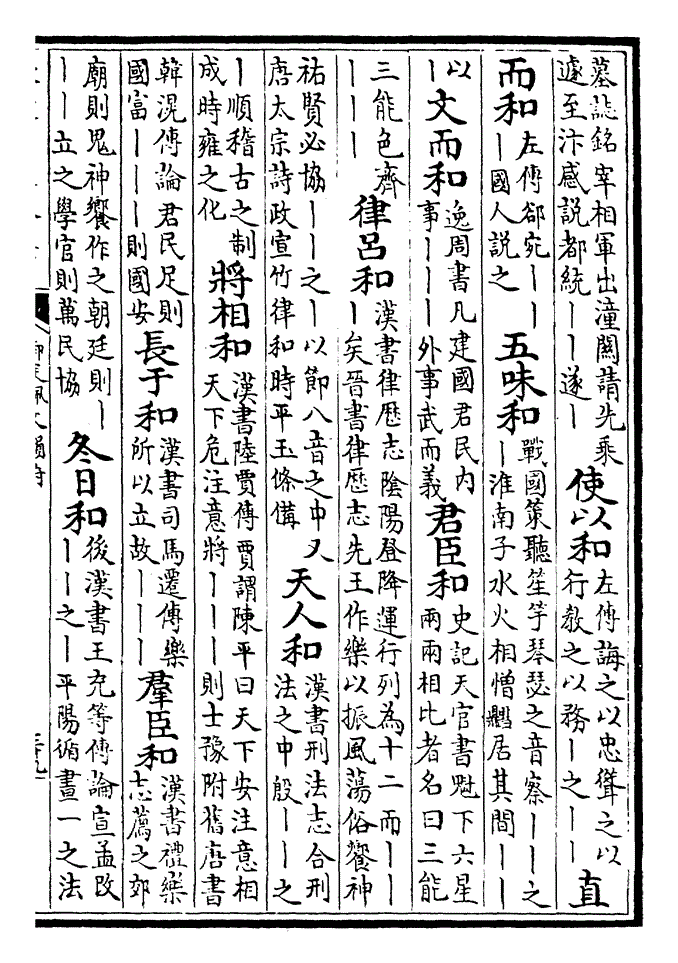 墓誌銘宰相軍出潼關請先乘
遽至汴感説都統丨丨遂丨
使以和
左傳誨之以忠聳之以
行教之以務丨之丨丨
直
而和
左傳郤宛丨丨
丨國人説之
五味和
戰國策聽笙竽琴瑟之音察丨丨之
丨淮南子水火相憎居其間丨丨
以
丨
文而和
逸周書凡建國君民内
事丨丨丨外事武而義
君臣和
史記天官書魁下六星
兩兩相比者名曰三能
三能色齊
丨丨丨
律呂和
漢書律歴志陰陽登降運行列為十二而丨丨
丨矣晉書律歴志先王作樂以振風蕩俗饗神
祐賢必協丨丨之丨以節八音之中又
唐太宗詩政宣竹律和時平玉條備
天人和
漢書刑法志合刑
法之中殷丨丨之
丨順稽古之制
成時雍之化
將相和
漢書陸賈傳賈謂陳平曰天下安注意相
天下危注意將丨丨丨則士豫附舊唐書
韓滉傳論君民足則
國富丨丨丨則國安
長于和
漢書司馬遷傳樂
所以立故丨丨丨
羣臣和
漢書禮樂
志薦之郊
廟則鬼神饗作之朝廷則丨
丨丨立之學官則萬民協
冬日和
後漢書王充等傳論宣孟改
丨丨之丨平陽循畫一之法